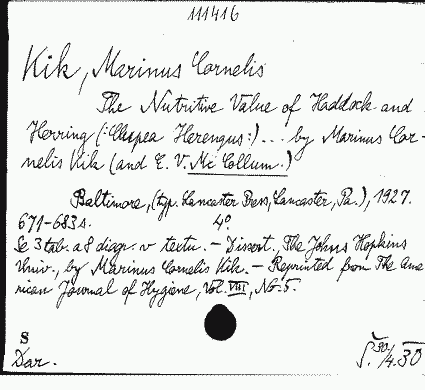 111416
Kik, Marinus Cornelis
The Nutritive Value of Haddock and
Herring (:Clupea Herengus:) ... by Marinus Cor-
nelis Kik (and E. V. Mc Collum.)
Baltimore, (typ. Lancaster Press, Lancaster, Pa.), 1927.
671-683 s. 4°.
Se 3 tab. a 8 diagr. v textu. - Dissert., The Johns Hopkins
Univ., by Marinus Cornelis Kik. - Reprinted from The Ame
rican Journal of Hygiene, Vol. VIII, No. 5.
S
Dar.
30